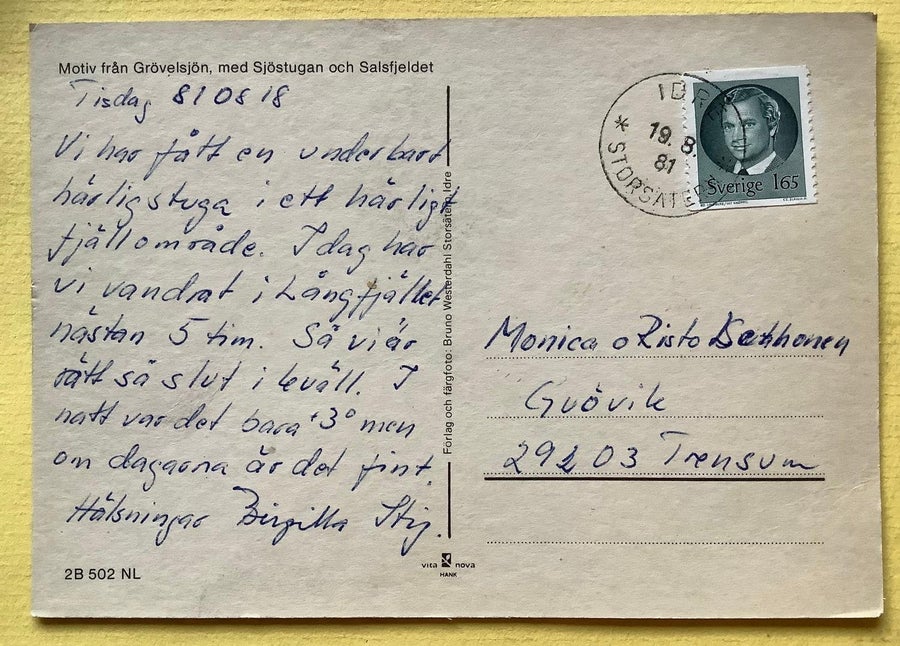 Motiv från Grövelsjön, med Sjöstugan och Salsfjeldet
Tisdag 810818
Vi har fått en underbart
härlig stuga i ett härligt
fjällområde. Idag har
vi vandrat i Långfjället
nästan 5 tim. Så vi är
rätt så slut i kväll. I
natt var det bara +3° men
om dagarna är det fint.
Hälsningar Birgitta Stig.
2B 502 NL
Förlag och färgfoto: Bruno Westerdahl Storsätern, Idre
vita nova
HANK
IDRE
19.8.
81
* STORSÄTERN
Sverige 165
Monica o Risto
Guövik
292 03 Trensum